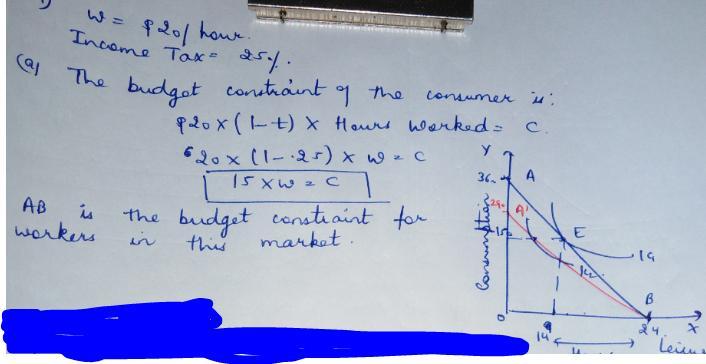 W = $20/ hour.
Income Tax = 25%.
(a) The budget constraint of the consumer is:
$20 x (1-t) x Hours Worked = C.
20 x (1-.25) x W = C
15 x W = C
AB is the budget constraint for
workers in this market.
Y
36
A
A'
15
E
Consumption
B
0
24
X